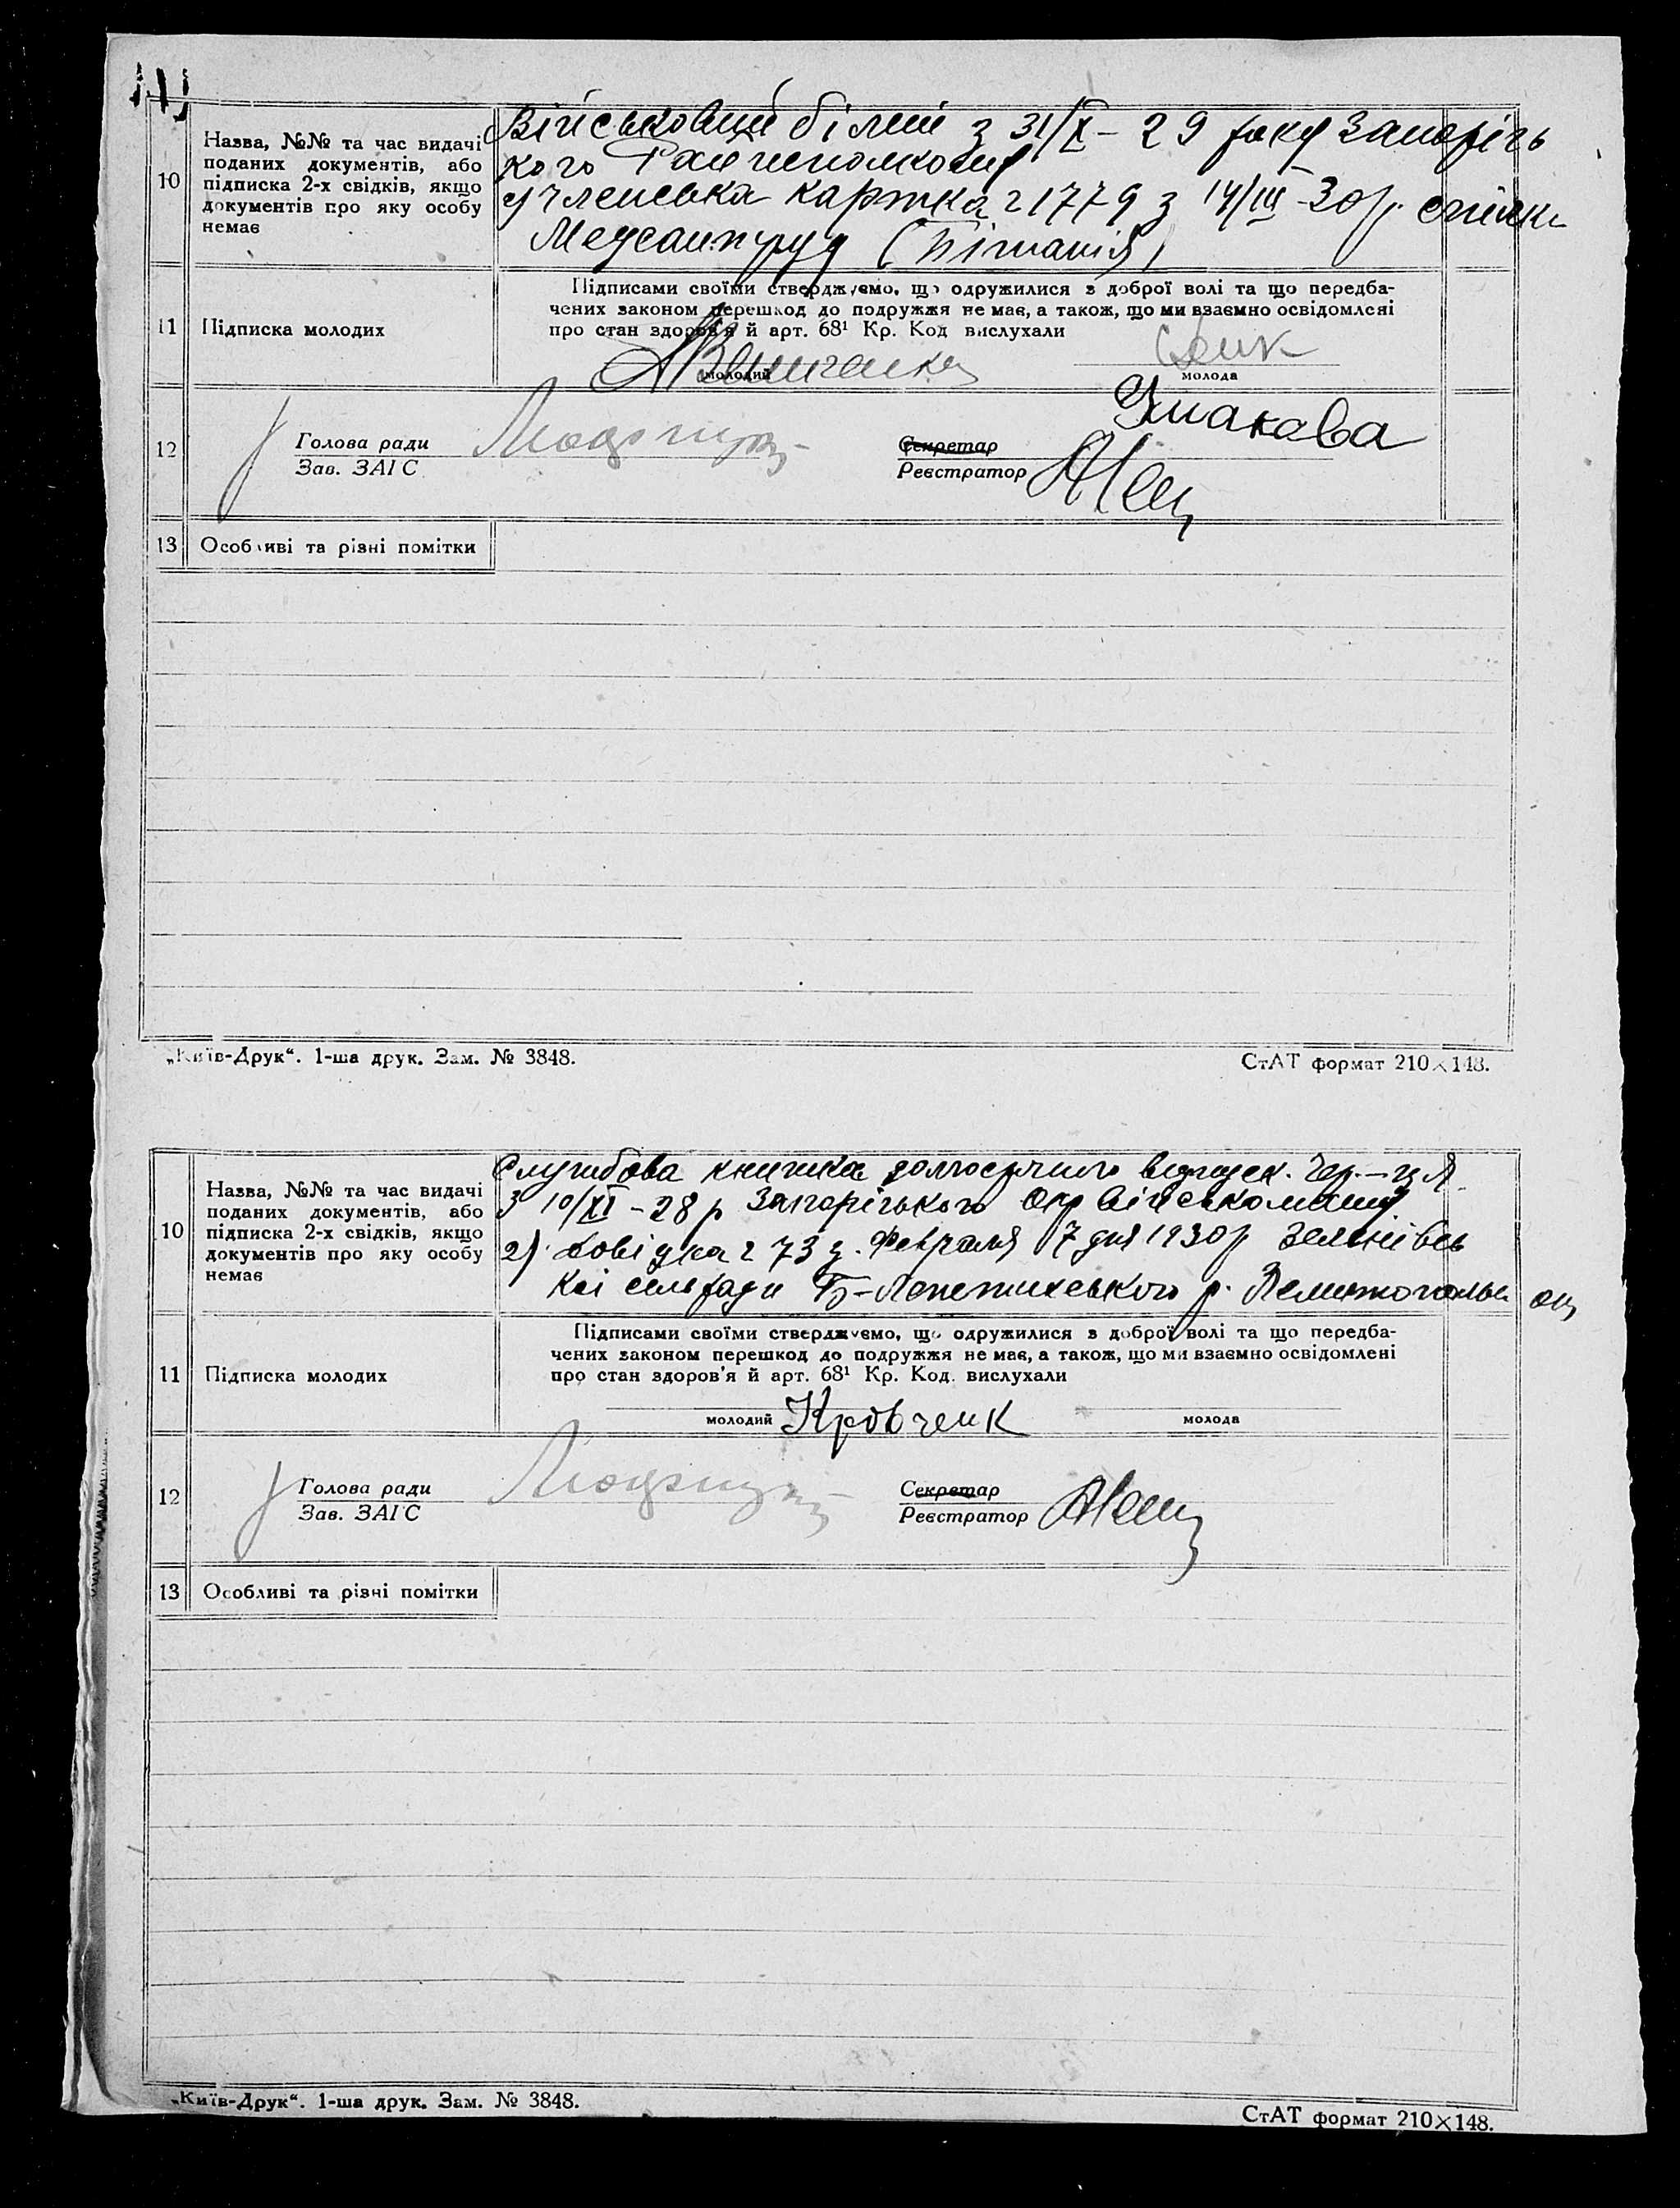 10
Назва, №№ та час видачі
поданих документів, або
підписка 2-х свідків, якщо
документів про яку особу
немає
Військовий білет з 31/X - 29 року Запоріжь
кого
членська картка 21779 з 14/III - 30 р. спілки
Медсанпруд (Вітанія)
11
Підписка молодих
Підписами своїми стверджуємо, що одружилися з доброї волі та що передба-
чених законом перешкод до подружжя не має, а також, що ми взаємно освідомлені
про стан здоров'я й арт. 68¹ Кр. Код вислухали
молодий
молода
Ушакова
12
Голова ради
Зав. ЗАГС
Секретар
Реєстратор
13
Особливі та різні помітки
„Київ-Друк“. 1-ша друк. Зам. № 3848.
СтАТ формат 210×148.
10
Назва, №№ та час видачі
поданих документів, або
підписка 2-х свідків, якщо
документів про яку особу
немає
Службова книжка
з 10/XI - 28 р Запорізького Окр Військомату
2) Довідка 2 73 з. Февраля 7 дня 1930 р Зеленівсь
кої сельради Б-Лепетихського р. Мелитопольсь ок
11
Підписка молодих
Підписами своїми стверджуємо, що одружилися з доброї волі та що передба-
чених законом перешкод до подружжя не має, а також, що ми взаємно освідомлені
про стан здоров'я й арт. 68¹ Кр. Код. вислухали
молодий Кровченк
молода
12
Голова ради
Зав. ЗАГС
Секретар
Реєстратор
13
Особливі та різні помітки
„Київ-Друк“. 1-ша друк. Зам. № 3848.
СтАТ формат 210×148.